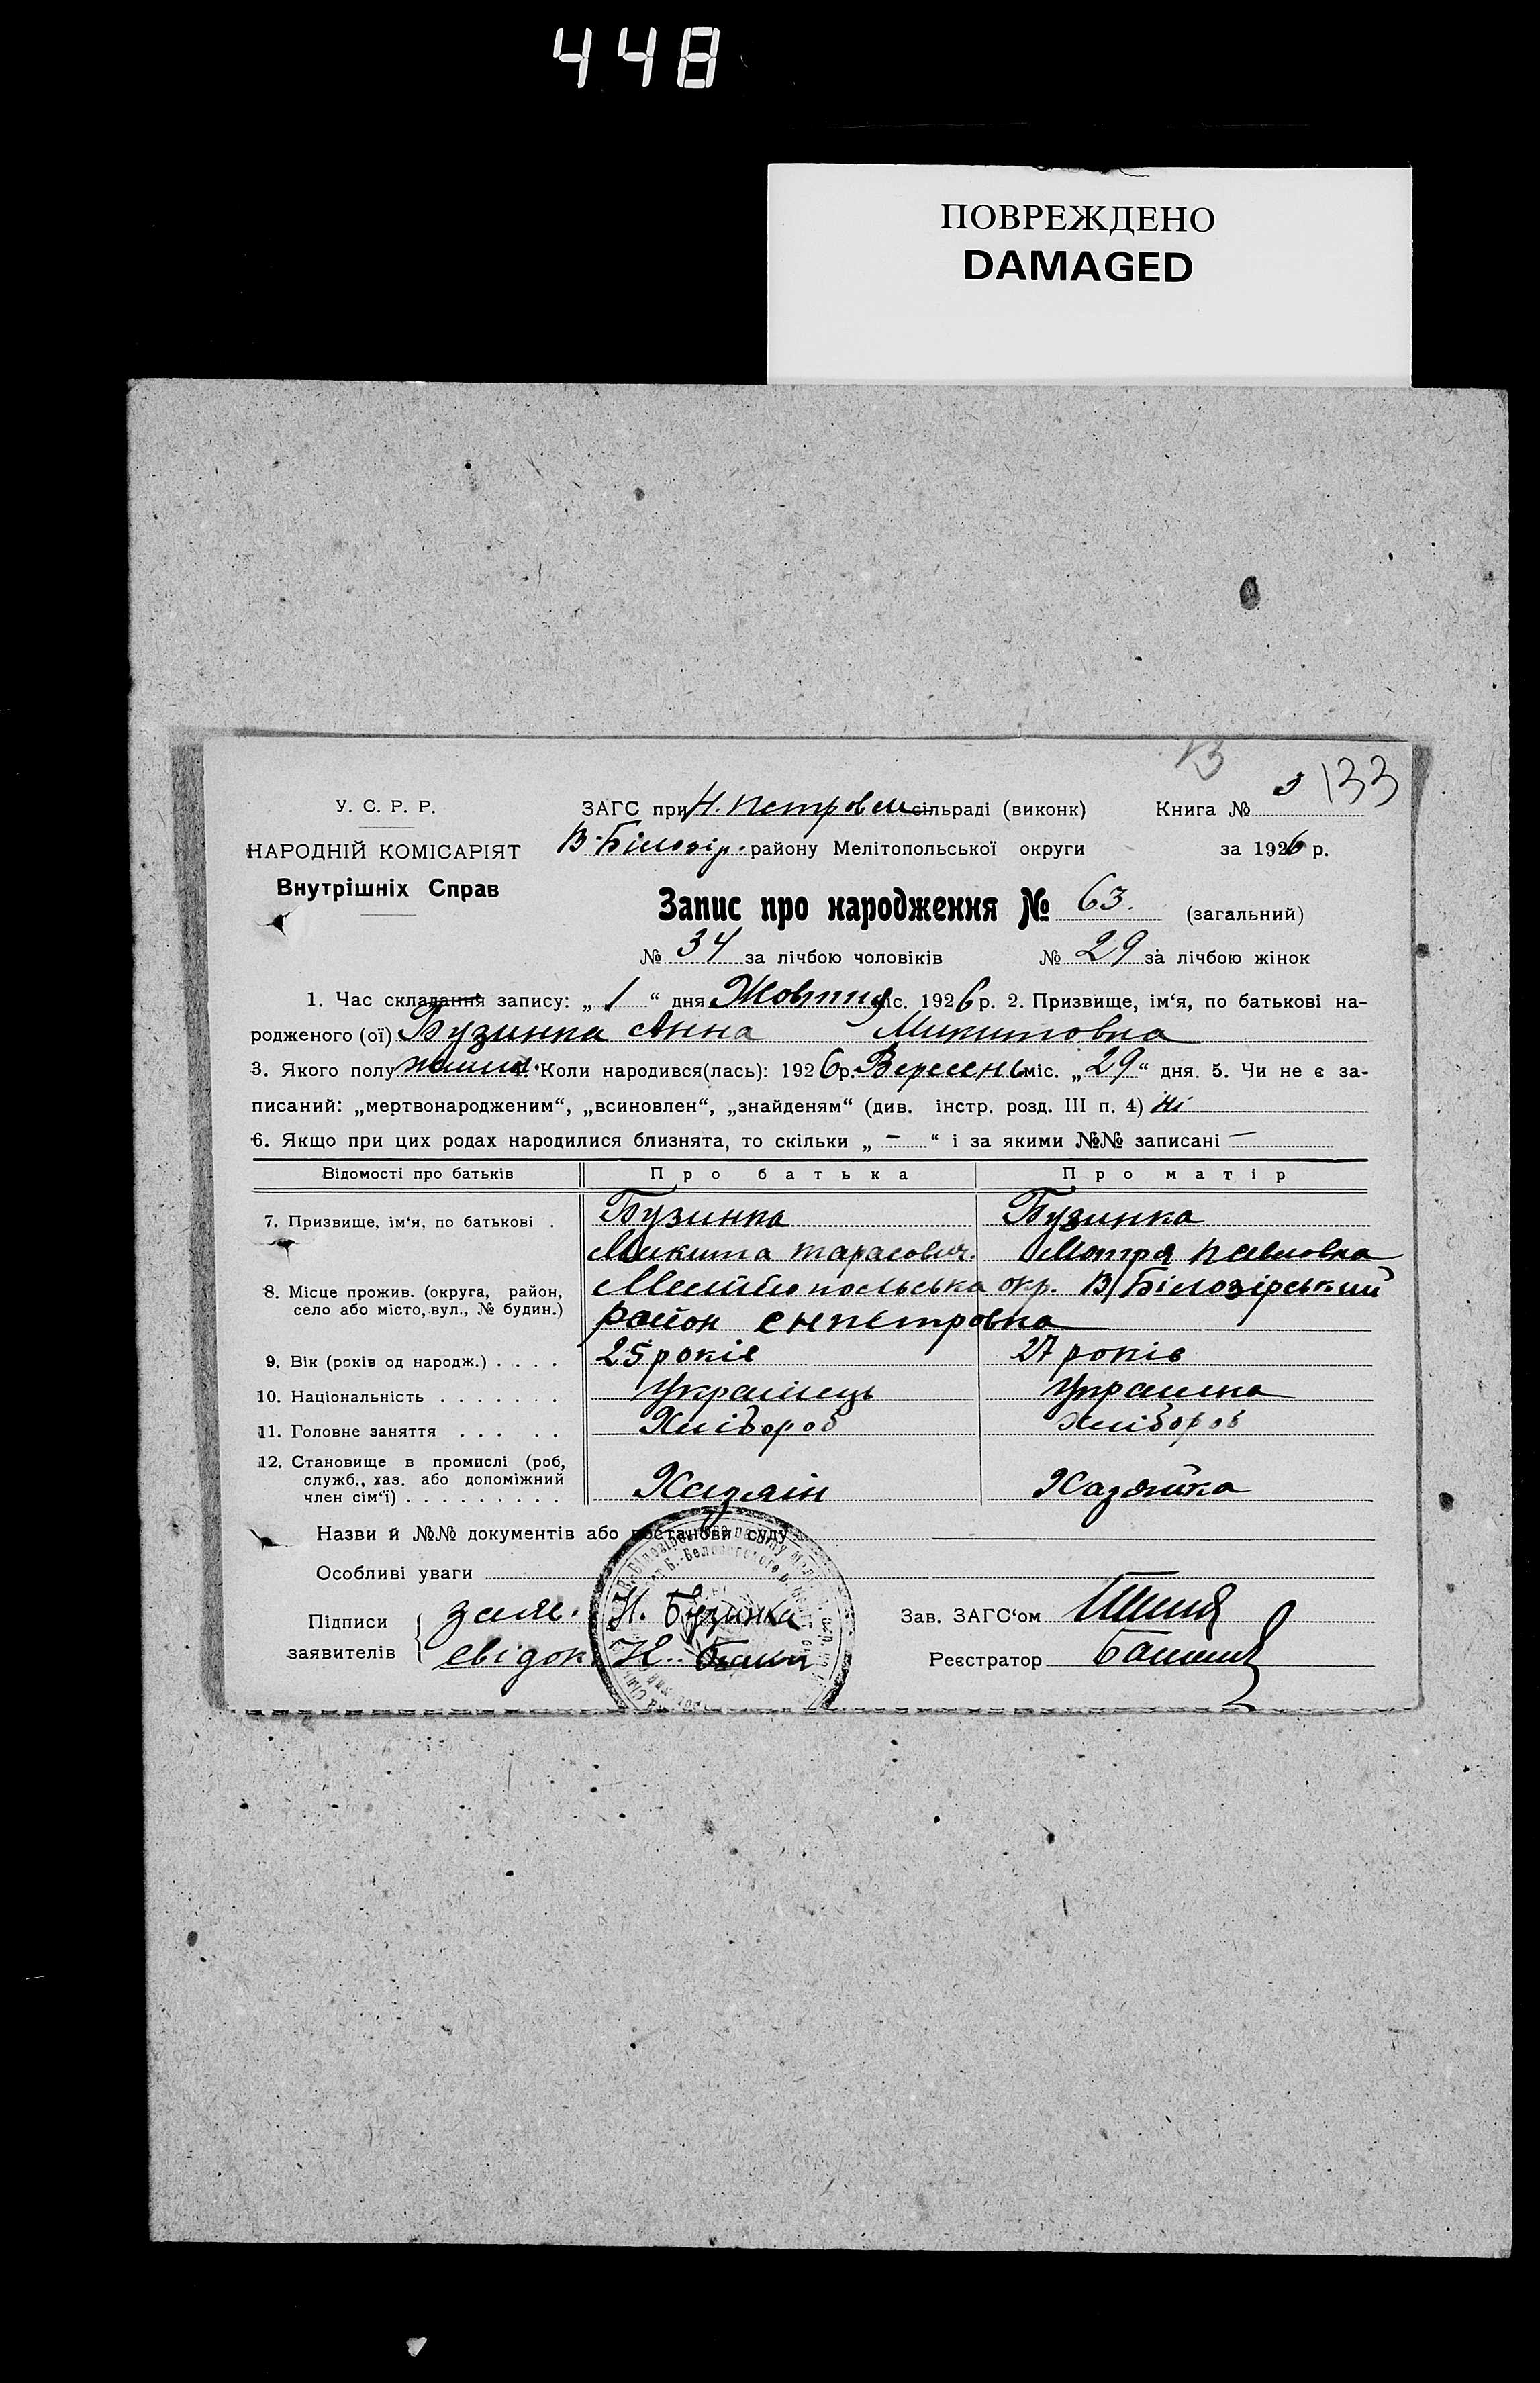 448
ПОВРЕЖДЕНО
DAMAGED
133
У. С. Р. Р.
ЗАГС при Н. Петровск сільраді (виконк)
Книга № 3
НАРОДНІЙ КОМІСАРІЯТ
В-Білозір. району Мелітопольської округи
за 1926 р.
Внутрішніх Справ
Запис про народження № 63. (загальний)
№ 34 за лічбою чоловіків № 29 за лічбою жінок
1. Час складання запису: „ 1 “ дня Жовтня міс. 1926 р. 2. Призвище, ім‘я, по батькові на-
родженого (ої) Бузинка Анна Микитовна
3. Якого полу 4. Коли народився(лась): 1926 р. Вересень міс. „ 29 “ дня. 5. Чи не є за-
писаний: „мертвонародженим“, „всиновлен“, „знайденям“ (див. інстр. розд. III п. 4) Ні
6. Якщо при цих родах народилися близнята, то скільки „ - “ і за якими №№ записані —
Відомості про батьків Про батька Про матір
7. Призвище, ім‘я, по батькові . Бузинка Бузинка
Микита Тарасович. Мотря Павловна
8. Місце прожив. (округа, район, Мелітопольська окр. В/Білозірський
село або місто, вул., № будин.) район с Н Петровка
9. Вік (років од народж.) . . . . 25 років 27 років
10. Національність . . . . . . . Українець Українка
11. Головне заняття . . . . . . Хлібороб хлібороб
12. Становище в промислі (роб,
служб., хаз. або допоміжний
член сім‘ї) . . . . . . . . . Хазяїн Хазяйка
Назви й №№ документів або постанови суду
Особливі уваги
Підписи
заявителів
заяв. Н. Бузинка
свідок Н.
Зав. ЗАГС‘ом
Реєстратор